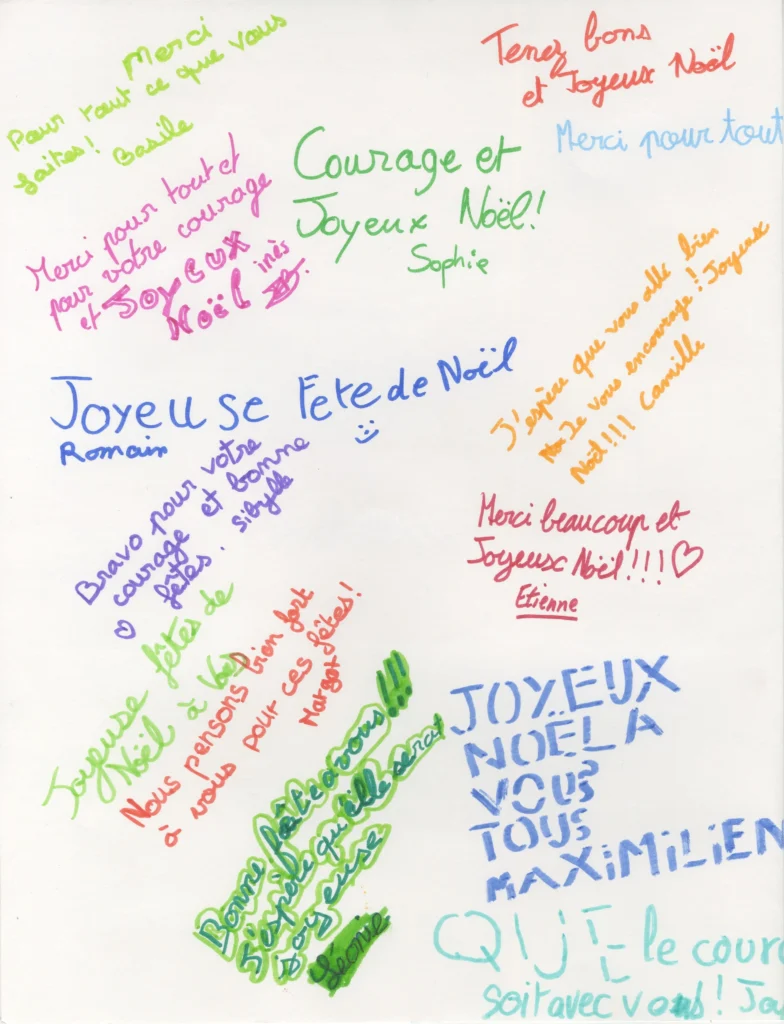 Merci
Pour tout ce que vous
faites!
Basile
Tenez bons
et Joyeux Noël
Merci pour tout
Courage et
Joyeux Noël!
Sophie
Merci pour tout et
pour votre courage
et JOYEUX
Noël inès
J'espère que vous allé bien
Je vous encourage! Joyeux
Noël!!! Camille
Joyeuse Fete de Noël
Romain
Bravo pour votre
courage et bonne
fêtes. Sibylle
Merci beaucoup et
Joyeux Noël!!!
Etienne
Joyeuse fêtes de
Noël à
Nous pensons bien fort
à vous pour ces fêtes!
Margot
Bonne fête a vous!!!
J'espère qu'elle serat
joyeuse
Léonie
JOYEUX
NOËL A
VOUS
TOUS
MAXiMiLiEN
QUE le cour
soit avec vous! Jo